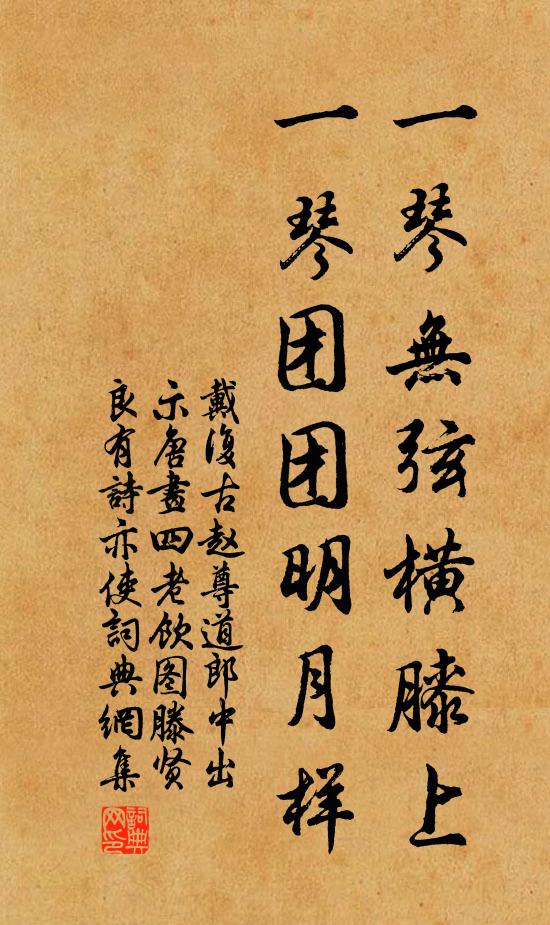 一琴無弦横膝上
一琴团团明月样
戴復古赵尊道郎中出
示唐畫四老飲图滕贤
良有詩亦使詞典網集
詞典网印